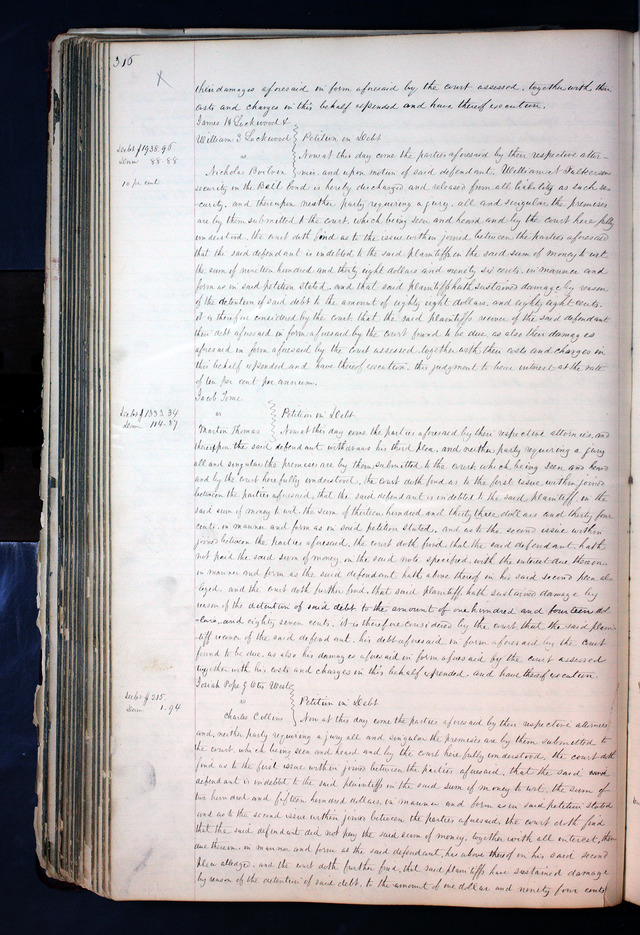 316
their damages aforesaid in form aforesaid by the court assessed, together with their
costs and charges in this behalf expended and have thereof execution.
James H Lockwood &
William Lockwood } Petition in Debt
Debt $1938.96
Dam 88.88
10 per cent
vs } Now at this day come the parties aforesaid by their respective attor-
Nicholas nies, and upon motion of said defendant, William
security in the Bail bond is hereby discharged and released from all liability as such se-
curity, and thereupon neither party requiring a jury, all and singular the premises
are by them submitted to the court, which being seen and heard and by the court here fully
understood, the court doth find as to the issue within joined between the parties aforesaid
that the said defendant is indebted to the said plaintiffs in the said sum of money to wit
the sum of nineteen hundred and thirty eight dollars and ninety six cents, in manner and
form as in said petition stated, and that said plaintiffs hath sustained damage by reason
of the detention of said debt to the amount of eighty eight dollars, and eighty eight cents.
it is therefore considered by the court that the said plaintiffs recover of the said defendant
their debt aforesaid in form aforesaid by the court found to be due, as also their damages
aforesaid in form aforesaid by the court assessed, together with their costs and charges in
this behalf expended and have thereof execution, this judgment to bear interest at the rate
of ten per cent per annum.
Jacob Tome
Debt $1333.34
Dam 114.87
vs } Petition in Debt
Martin Thomas } Now at this day come the parties aforesaid by their respective attornies, and
thereupon the said defendant withdraws his third plea, and neither party requiring a jury
all and singular the premises are by them submitted to the court which being seen and heard
and by the court here fully understood, the court doth find as to the first issue within joined
between the parties aforesaid, that the said defendant is indebted to the said plaintiff in the
said sum of money to wit, the sum of thirteen hundred and thirty three dollars and thirty four
cents, in manner and form as in said petition stated, and as to the second issue within
joined between the parties aforesaid, the court doth find, that the said defendant, hath
not paid the said sum of money in the said note specified, with the interest due thereon
in manner and form as the said defendant hath above thereof in his said second plea al-
ledged, and the court doth further find, that said plaintiff, hath sustained damage by
reason of the detention of said debt to the amount of one hundred and fourteen dol-
-lars, and eighty seven cents. it is therefore considered by the court that the said plain-
tiff recover of the said defendant, his debt aforesaid in form aforesaid by the court
found to be due, as also his damages aforesaid in form aforesaid by the court assessed
together with his costs and charges in this behalf expended, and have thereof execution.
Josiah Pope & Otis
Debt $215.
Dam 1.94
vs } Petition in Debt
Charles Collins } Now at this day come the parties aforesaid by their respective attornies
and, neither party requiring a jury all and singular the premises are by them submitted to
the court, which being seen and heard and by the court here fully understood, the court doth
find as to the first issue within joined between the parties aforesaid, that the said
defendant is indebted to the said plaintiffs in the said sum of money to wit, the sum of
two hundred and fifteen hundred dollars, in manner and form as in said petition stated
and as to the second issue within joined between the parties aforesaid, the court doth find
that the said defendant did not pay the said sum of money, together with all interest, then
due thereon, in manner and form as the said defendant, has above thereof in his said second
plea alledged, and the court doth further find, that said plaintiffs have sustained damage
by reason of the detention of said debt, to the amount of one dollar and ninety four cents